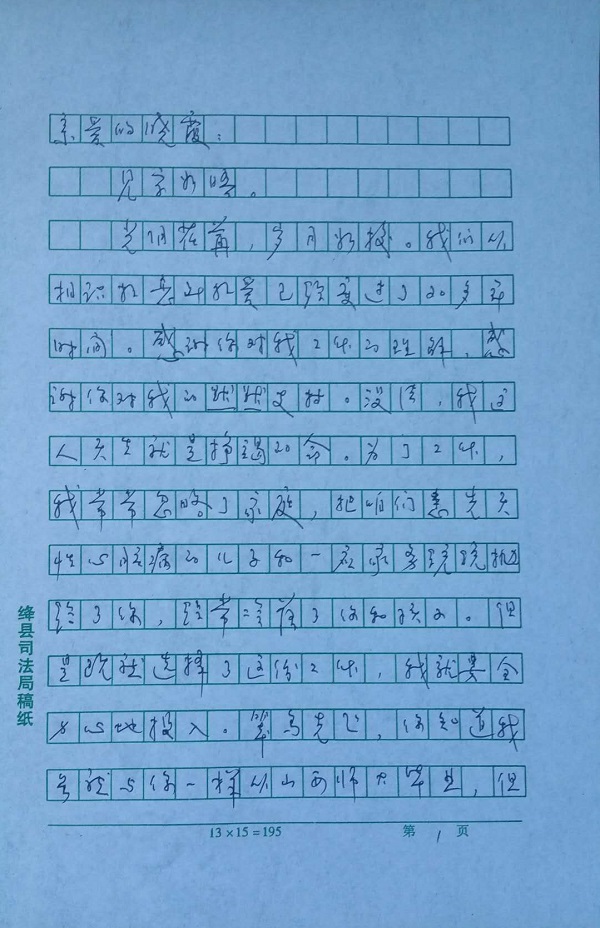 亲爱的晓霞：
见字如晤。
光阴荏苒，岁月如梭。我们从
相识相恋到相爱已经度过了20多年
时间。感谢你对我工作的理解，感
谢你对我的默默支持。没法，我这
人天生就是挣
命。为了工作，
我常常忽略了家庭，把咱们患先天
性心脏病的儿子和一应家务统统扔
给了你，经常冷落了你和孩子。但
是既然选择了这份工作，我就要全
身心地投入。笨鸟先飞，你知道我
虽说与你一样从山西师大毕业，但
绛县司法局稿纸
13×15=195
第 1 页